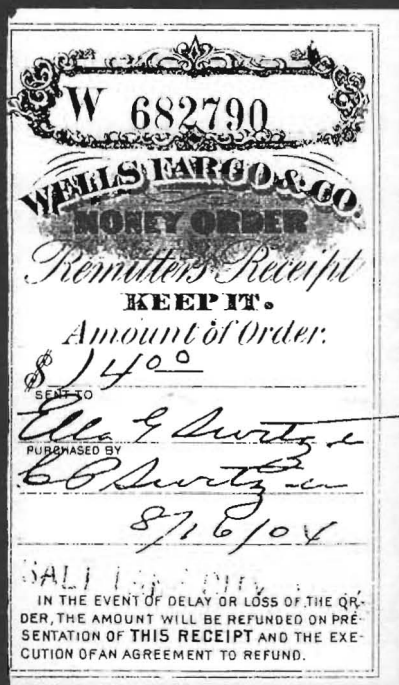 W 682790
WELLS FARGO & CO.
MONEY ORDER
Remitter's Receipt
KEEP IT.
Amount of Order.
$ 14 00
SENT TO
Ella G
PURCHASED BY
C P
8/16/04
SALT LAKE CITY
IN THE EVENT OF DELAY OR LOSS OF THE OR-
DER, THE AMOUNT WILL BE REFUNDED ON PRE-
SENTATION OF THIS RECEIPT AND THE EXE-
CUTION OF AN AGREEMENT TO REFUND.